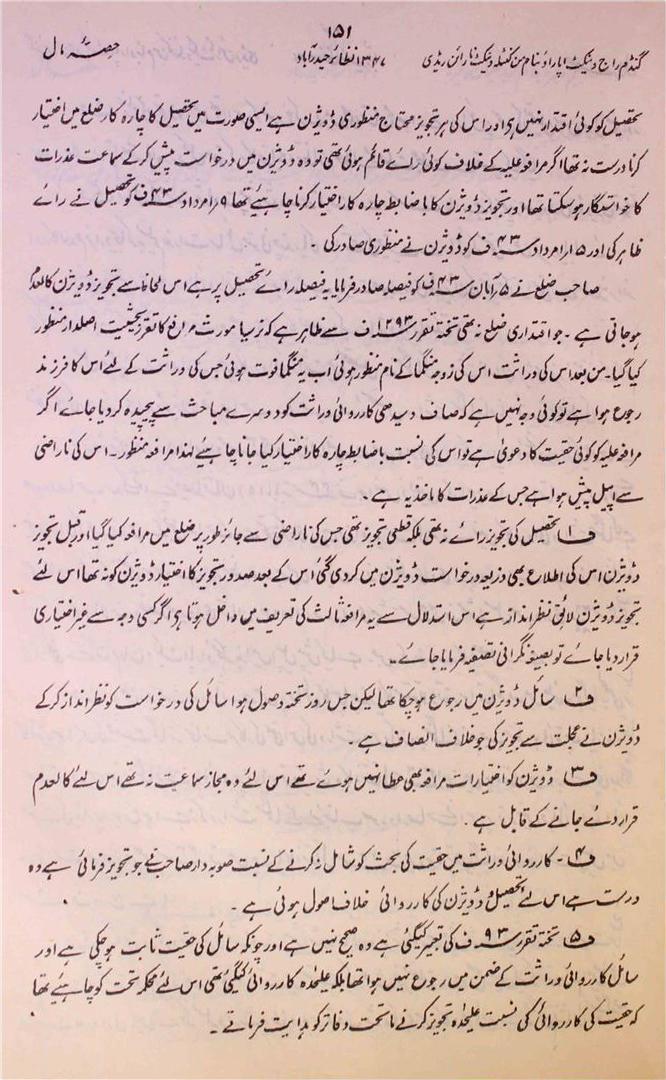 ۱۵۱
گنڈم راج ونیکٹ اپاراؤ بنام من کنٹلہ ونیکٹ نارائن ریڈی ۱۳۴۷ نظائر حیدرآباد حصہ مال
تحصیل کو کوئی اقتدار نہیں ہے اور اس کی ہر تجویز محتاج منظوری ڈویژن ہے ایسی صورت میں تحصیل کا چارہ کار ضلع میں اختیار
کرنا درست نہ تھا اگر مرافعہ علیہ کے خلاف کوئی رائے قائم ہوئی تھی تو وہ ڈویژن میں درخواست پیش کرکے سماعت عذرات
کا خواستگار ہوسکتا تھا اور تجویز ڈویژن کا باضابطہ چارہ کار اختیار کرنا چاہیئے تھا ۹ امرداد ۴۳ف کو تحصیل نے رائے
ظاہر کی اور ۱۵ امرداد ۴۳ف کو ڈویژن نے منظوری صادر کی ۔
صاحب ضلع نے ۵ آبان ۴۳ف کو فیصلہ صادر فرمایا یہ فیصلہ رائے تحصیل پر ہے اس لحاظ سے تجویز ڈویژن کالعدم
ہوجاتی ہے ۔ جو اقتداری ضلع نہ تھی تختہ تقرر ۱۲۹۳ف سے ظاہر ہے کہ نرسیا مورث مرافع کا تقرر بحیثیت اصلدار منظور
کیا گیا ۔ من بعد اس کی وراثت اس کی زوجہ منگما کے نام منظور ہوئی اب یہ منگما فوت ہوئی جس کی وراثت کے لئے اس کا فرزند
رجوع ہوا ہے تو کوئی وجہ نہیں ہے کہ صاف و سیدھی کارروائی وراثت کو دوسرے مباحث سے پیچیدہ کردیا جائے اگر
مرافعہ علیہ کو کوئی حقیت کا دعویٰ ہے تو اس کی نسبت باضابطہ چارہ کار اختیار کیا جانا چاہیئے لہذا مرافعہ منظور ۔ اس کی ناراضی
سے اپیل پیش ہوا ہے جس کے عذرات کا ماخذ یہ ہے ۔
ف۱ تحصیل کی تجویز رائے نہ تھی بلکہ قطعی تجویز تھی جس کی ناراضی سے جائز طور پر ضلع میں مرافعہ کیا گیا اور قبل تجویز
ڈویژن اس کی اطلاع بھی ذریعہ درخواست ڈویژن میں کردی گئی اس کے بعد صدور تجویز کا اختیار ڈویژن کو نہ تھا اس لئے
تجویز ڈویژن لائق نظر انداز ہے اس استدلال سے یہ مرافعہ ثالث کی تعریف میں داخل ہوتا ہے اگر کسی وجہ سے غیر اختیاری
قرار دیا جائے تو بصیغہ نگرانی تصفیہ فرمایا جائے ۔
ف۲ سائل ڈویژن میں رجوع ہوچکا تھا لیکن جس روز تختہ وصول ہوا سائل کی درخواست کو نظر انداز کرکے
ڈویژن نے عجلت سے تجویز کی جو خلاف انصاف ہے ۔
ف۳ ڈویژن کو اختیارات مرافعہ بھی عطا نہیں ہوئے تھے اس لئے وہ مجاز سماعت نہ تھے اس لئے کالعدم
قرار دئے جانے کے قابل ہے ۔
ف۴ ۔ کارروائی وراثت میں حقیت کی بحث کو شامل نہ کرنے کے نسبت صوبہ دار صاحب نے جو تجویز فرمائی ہے وہ
درست ہے اس لئے تحصیل و ڈویژن کی کارروائی خلاف اصول ہوئی ہے ۔
ف۵ تختہ تقرر ۹۳ف کی تعبیر کیگئی ہے وہ صحیح نہیں ہے اور چونکہ سائل کی حقیت ثابت ہوچکی ہے اور
سائل کارروائی وراثت کے ضمن میں رجوع نہیں ہوا تھا بلکہ علیحدہ کارروائی کیگئی تھی اس لئے محکمہ تحت کو چاہیئے تھا
کہ حقیت کی کارروائی کی نسبت علیحدہ تجویز کرنے ماتحت دفاتر کو ہدایت فرماتے ۔